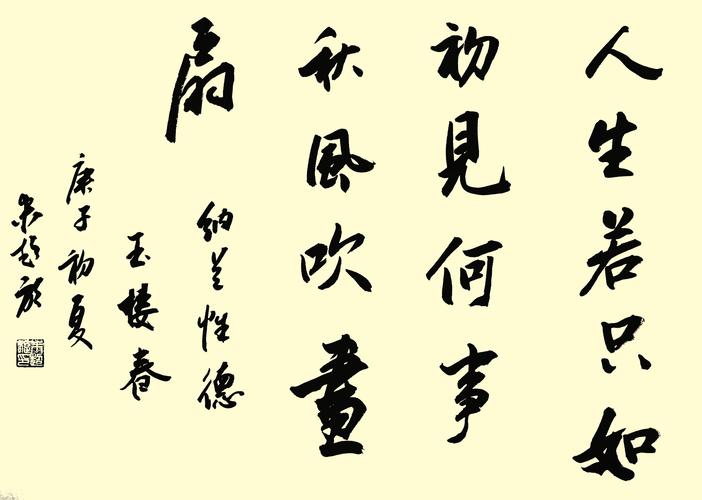 人生若只如
初見何事
秋風吹畫
扇
納兰性德
玉樓春
庚子初夏